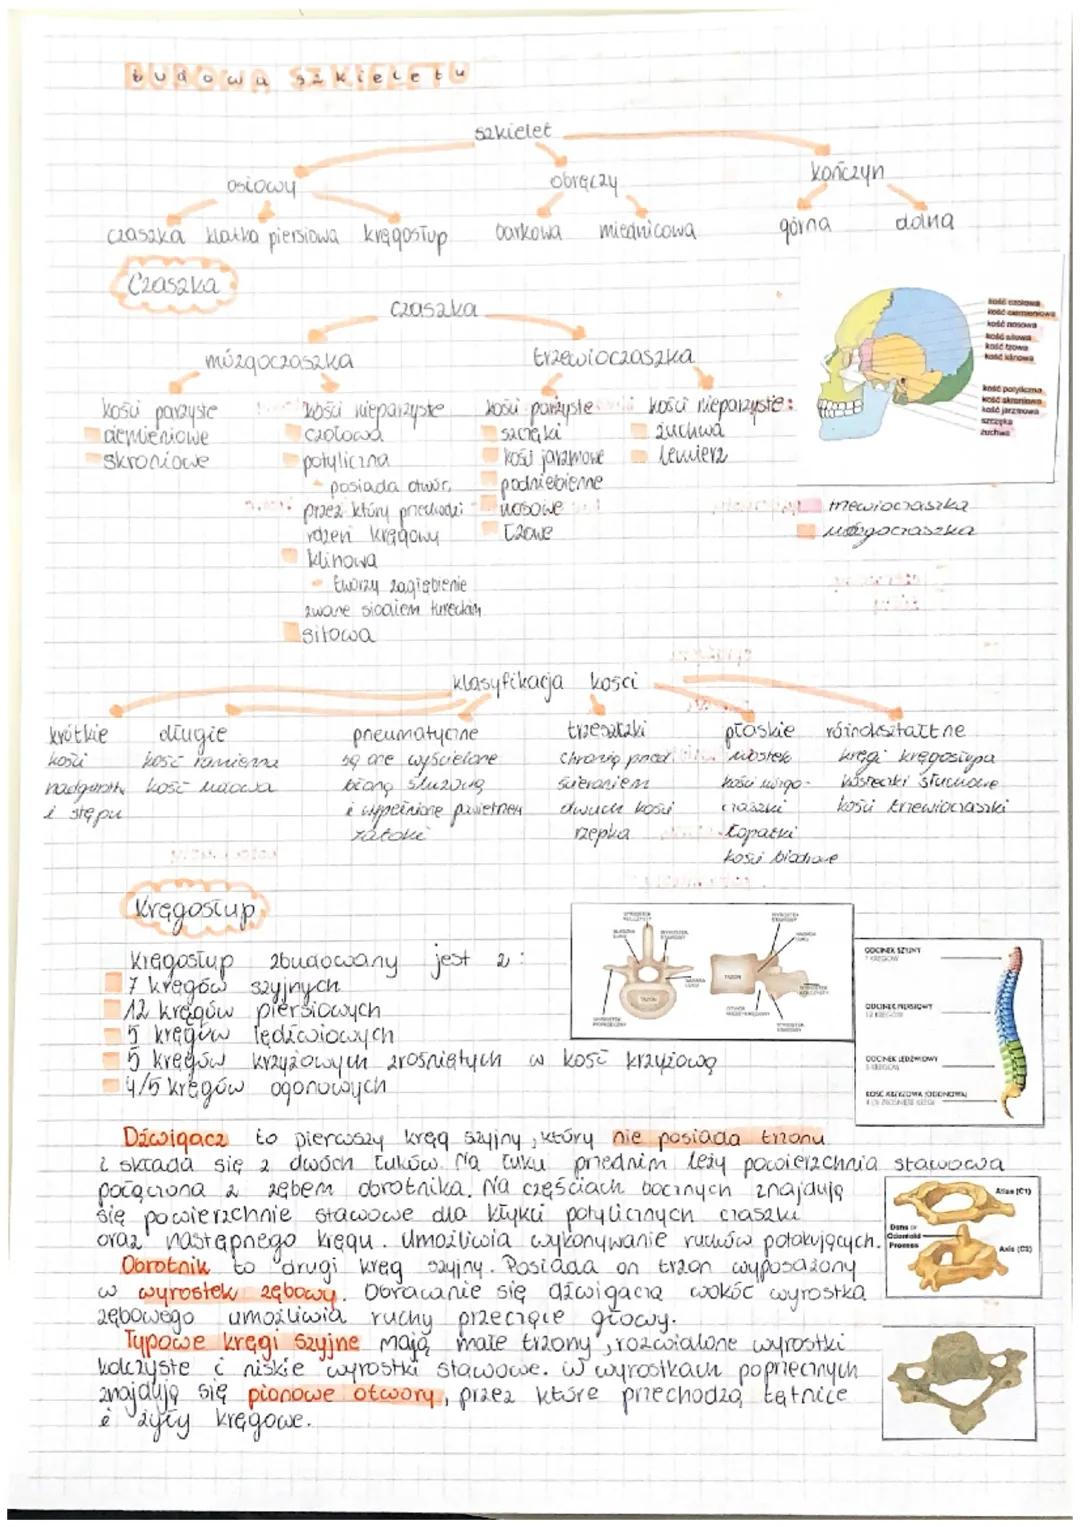 budowa szkieletu
szkielet
osiowy obręczy kończyn
czaszka klatka piersiowa kręgosłup barkowa miednicowa górna dolna
Czaszka
czaszka
mózgoczaszka trzewioczaszka
kości parzyste
ciemieniowe
skroniowe
kości nieparzyste
czołowa
potyliczna
posiada otwór,
przez który przechodzi
rdzeń kręgowy
klinowa
tworzy zagłębienie
zwane siodłem tureckim
sitowa
kości parzyste
szczęki
kości jarzmowe
podniebienne
nosowe
łzowe
kości nieparzyste:
żuchwa
lemiesz
kość czołowa
kość ciemieniowa
kość nosowa
kość sitowa
kość łzowa
kość klinowa
kość potyliczna
kość skroniowa
kość jarzmowa
szczęka
żuchwa
trzewioczaszka
mózgoczaszka
klasyfikacja kości
krótkie
kości
nadgarstka
i stępu
długie
kość ramienna
kość udowa
pneumatyczne
są one wyścielone
błoną śluzową
i wypełnione powietrzem
zatoki
trzeszczki
chronią przed
ścieraniem
dwóch kości
rzepka
płaskie
mostek
kości mózgo-
czaszki
łopatki
kości biodrowe
różnokształtne
kręgi kręgosłupa
kosteczki słuchowe
kości trzewioczaszki
Kręgosłup
Kręgosłup zbudowany jest z:
7 kręgów szyjnych
12 kręgów piersiowych
5 kręgów lędźwiowych
5 kręgów krzyżowych zrośniętych w kość krzyżową
4/5 kręgów ogonowych
TRZON
TRZON
ODCINEK SZYJNY
7 KRĘGÓW
ODCINEK PIERSIOWY
12 KRĘGÓW
ODCINEK LĘDŹWIOWY
5 KRĘGÓW
KOŚĆ KRZYŻOWA (OGONOWA)
Dźwigacz to pierwszy kręg szyjny, który nie posiada trzonu
i składa się z dwóch łuków. Na łuku przednim leży powierzchnia stawowa
połączona z zębem obrotnika. Na częściach bocznych znajdują
się powierzchnie stawowe dla kłykci potylicznych czaszki
oraz następnego kręgu. Umożliwia wykonywanie ruchów potakujących.
Obrotnik to drugi kręg szyjny. Posiada on trzon wyposażony
w wyrostek zębowy. Obracanie się dźwigacza wokół wyrostka
zębowego umożliwia ruchy przeczące głowy.
Typowe kręgi szyjne mają małe trzony, rozwidlone wyrostki
kolczyste i niskie wyrostki stawowe. W wyrostkach poprzecznych
znajdują się pionowe otwory, przez które przechodzą tętnice
i żyły kręgowe.
Atlas (C1)
Dens or
Odontoid
Process
Axis (C2)